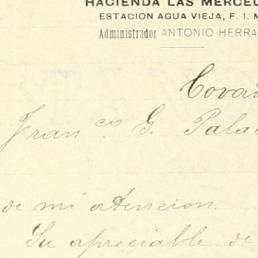 HACIENDA LAS MERCE
ESTACION AGUA VIEJA, F. I.
Administrador ANTONIO HERRA
Fran.co G. Pala
de mi atencion.
Su apreciable de